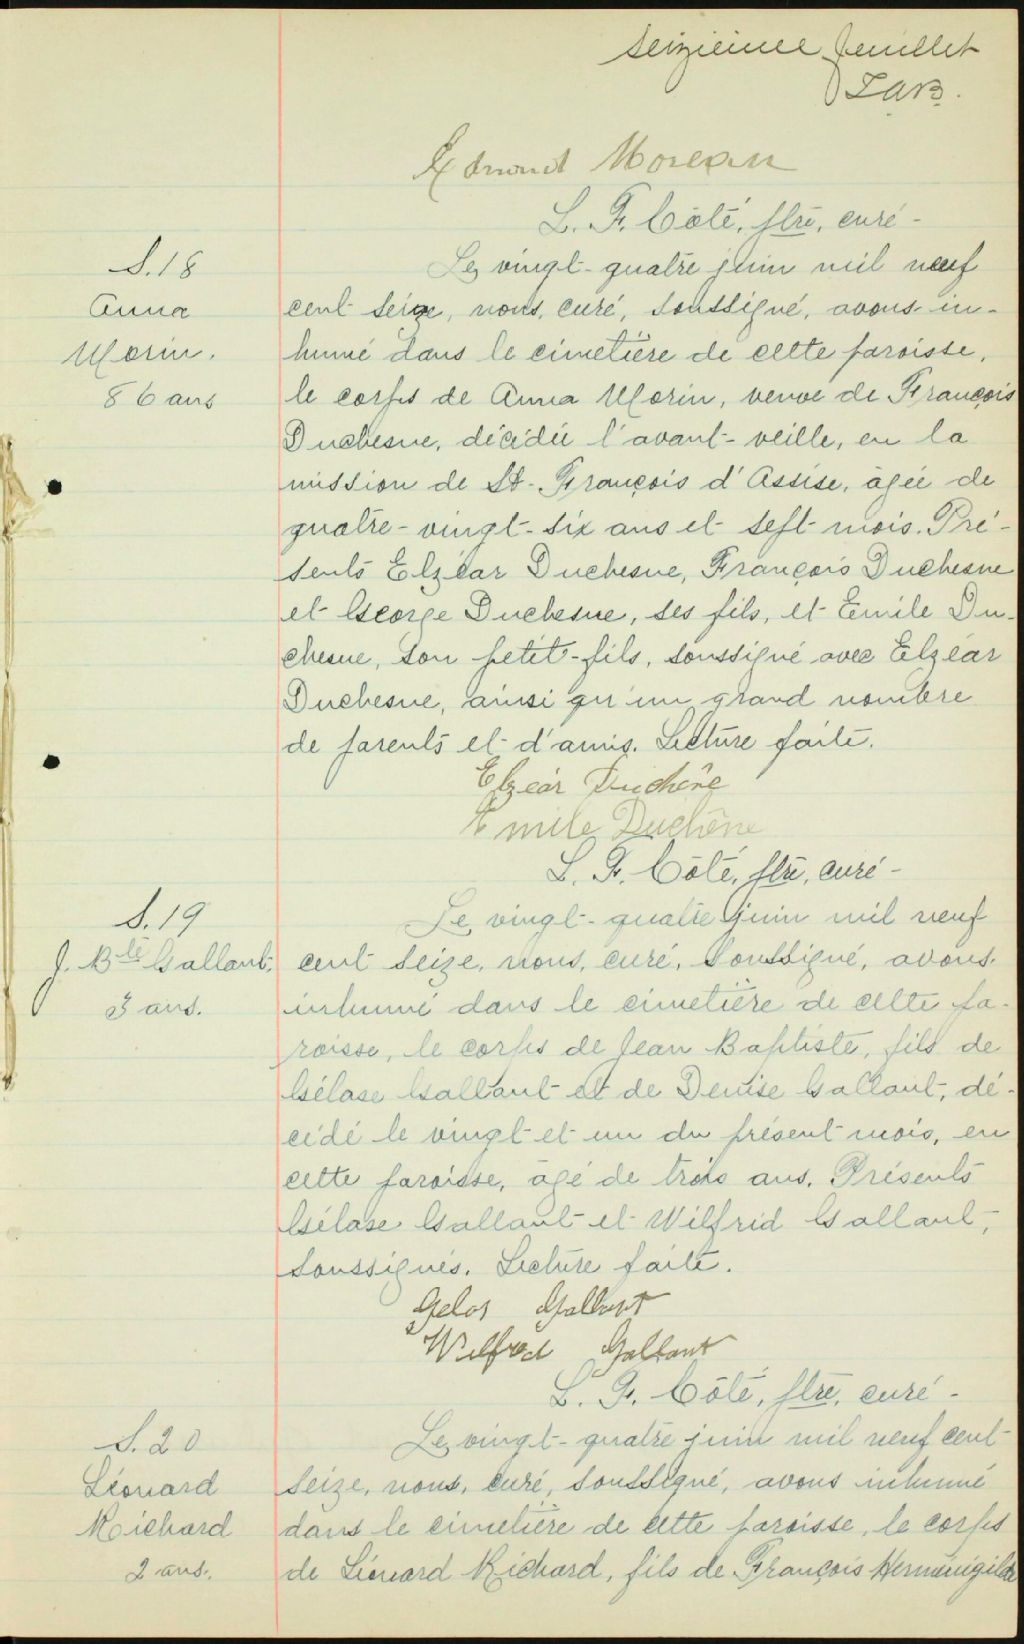 Seizième feuillet
L.A.B.
Edmond Moreau
L. F. Côté, ptre, curé -
S. 18
Anna
Morin.
86 ans
Le vingt-quatre juin mil neuf
cent seize, nous, curé, soussigné, avons in-
humé dans le cimetière de cette paroisse,
le corps de Anna Morin, veuve de François
Duchesne, décédée l'avant-veille, en la
mission de St-François d'Assise, âgée de
quatre-vingt-six ans et sept mois. Pré-
sents Elzéar Duchesne, François Duchesne
et George Duchesne, ses fils, et Emile Du-
chesne, son petit-fils, soussigné avec Elzéar
Duchesne, ainsi qu'un grand nombre
de parents et d'amis. Lecture faite.
Elzéar Duchêne
Emile Duchêne
L. F. Côté, ptre, curé -
S. 19
J. Bte Gallant,
3 ans.
Le vingt-quatre juin mil neuf
cent seize, nous, curé, soussigné, avons
inhumé dans le cimetière de cette pa-
roisse, le corps de Jean Baptiste, fils de
Gélase Gallant et de Denise Gallant, dé-
cédé le vingt et un du présent mois, en
cette paroisse, âgé de trois ans. Présents
Gélase Gallant et Wilfrid Gallant,
soussignés. Lecture faite.
Gelos Gallant
Wilfred Gallant
L. F. Côté, ptre, curé -
S. 20
Léonard
Richard
2 ans.
Le vingt-quatre juin mil neuf cent
seize, nous, curé, soussigné, avons inhumé
dans le cimetière de cette paroisse, le corps
de Léonard Richard, fils de François Herménigilde